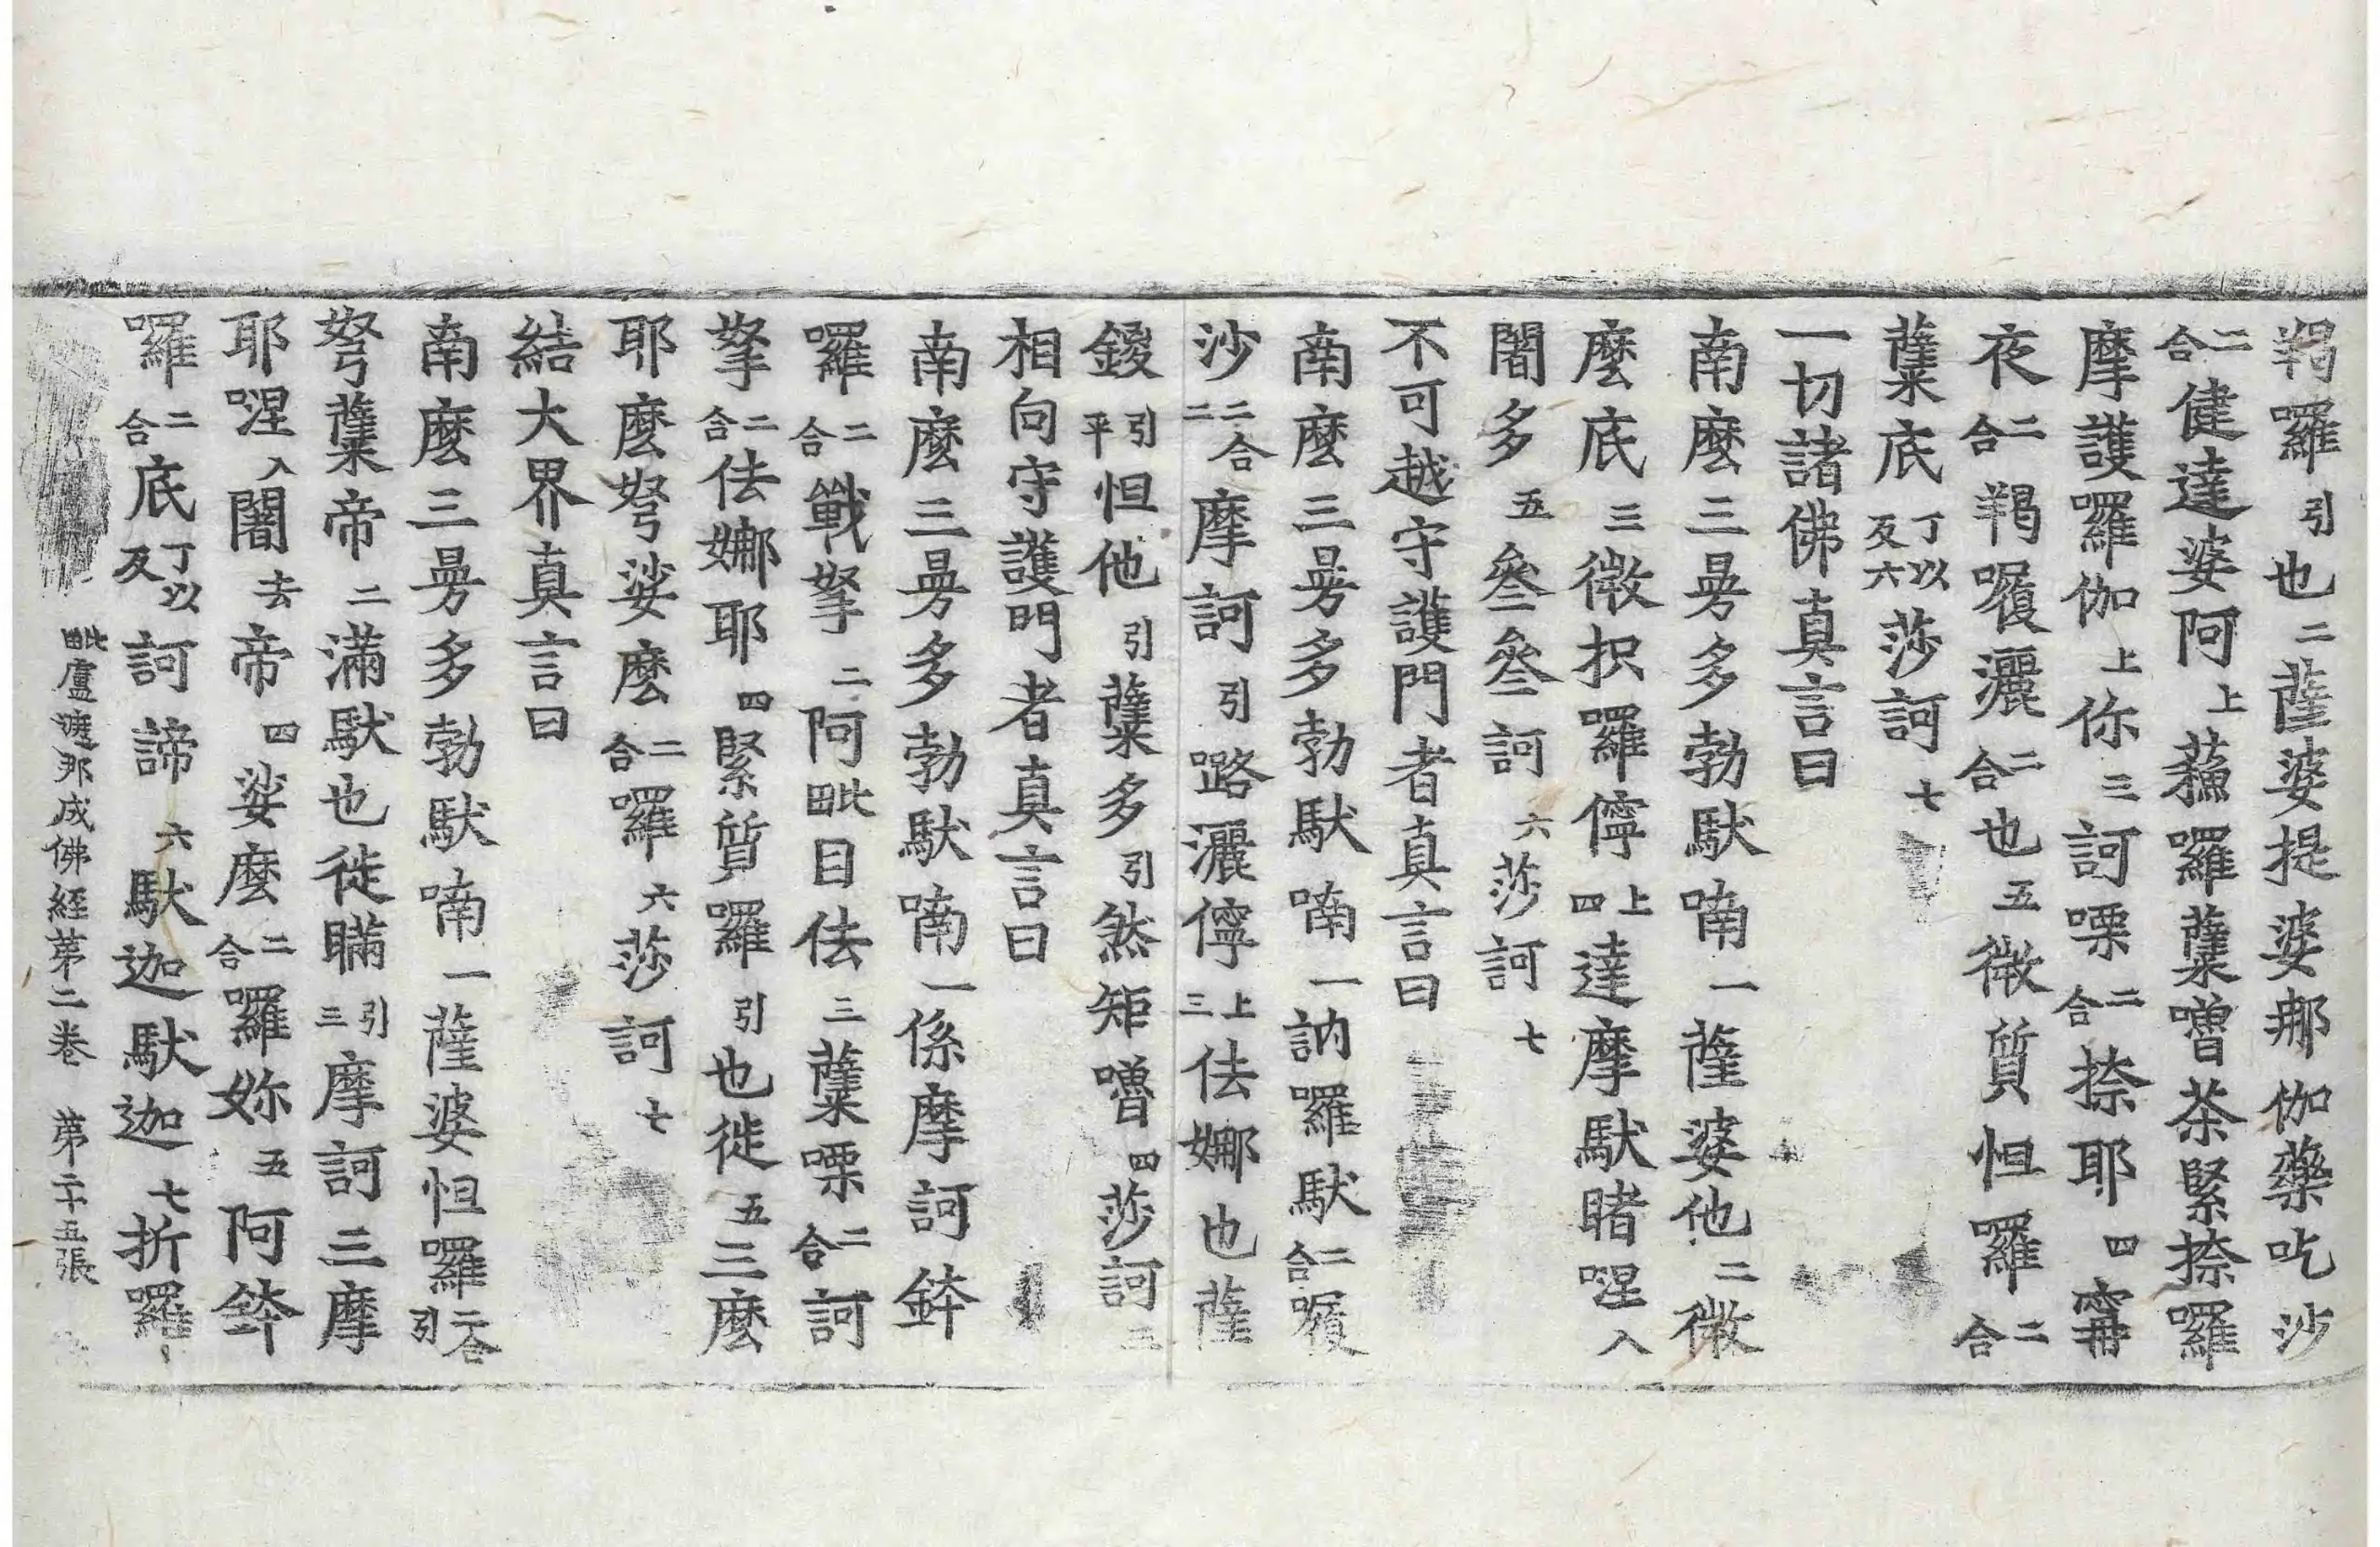 羯囉引也二薩婆提婆那伽藥吃沙
二合健達婆阿上蘓囉蘖嚕荼緊捺囉
摩護囉伽上你三訶㗚二合捺耶四寗
夜二合羯囇灑二合也五微質怛囉二合
蘖底丁以反六莎訶七
一切諸佛真言曰
南麽三曼多勃馱喃一薩婆他二微
麽底三微枳囉儜上四達摩馱睹涅入
闍多五叅叅訶六莎訶七
不可越守護門者真言曰
南麽三曼多勃馱喃一訥囉馱二合囇
沙二合二摩訶引𡀔灑儜上三佉娜也薩
鑁引平怛他引蘖多引然矩嚕四莎訶
相向守護門者真言曰
南麽三曼多勃馱喃一係摩訶鉢
囉二合戰拏二阿毗目佉三蘖㗚二合訶
拏二合佉娜耶四緊質囉引也徙五三麽
耶麽弩娑麽二合囉六莎訶七
結大界真言曰
南麽三曼多勃馱喃一薩婆怛囉二合引
弩蘖帝二滿馱也徙瞞引三摩訶三摩
耶涅入闍去帝四娑麽二合囉妳五阿鉢
囉二合底丁以反訶諦六馱迦馱迦七折囉
毗盧遮那成佛經第二卷 第二十五張